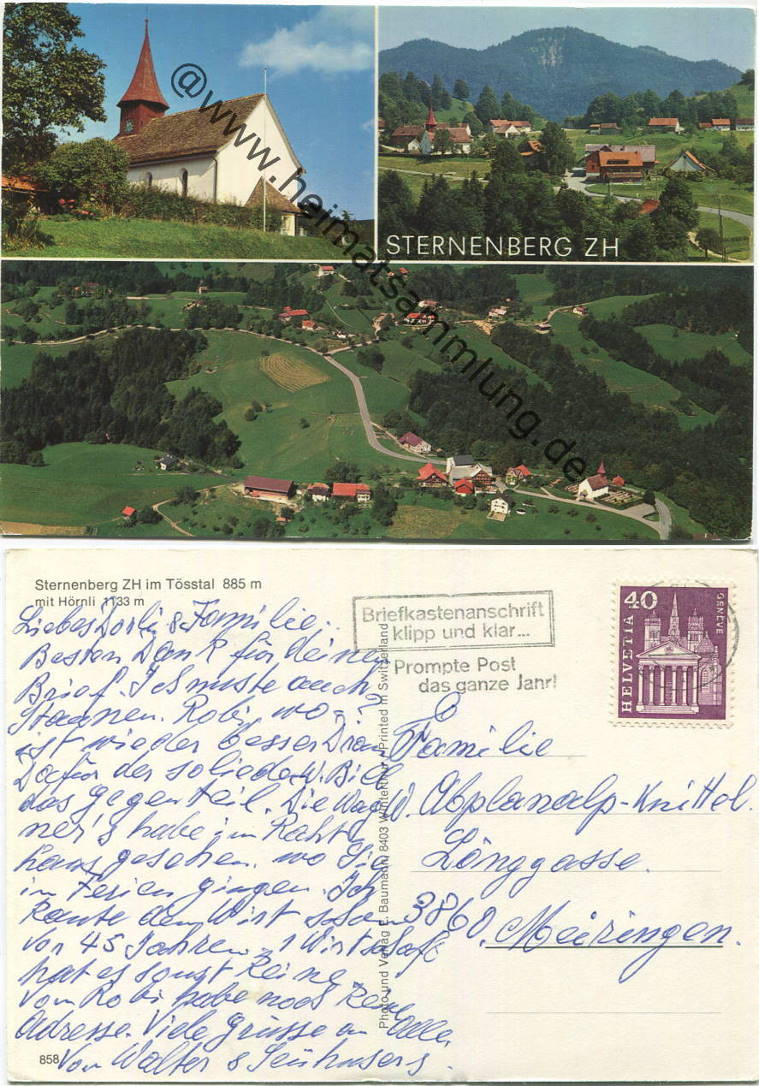 @www.heimatsammlung.de
STERNENBERG ZH
Sternenberg ZH im Tösstal 885 m
mit Hörnli 1133 m
Liebes Dorli & Familie.
Besten Dank für deinen
Brief. Ich muste auch
Staunen. Robi wo
ist wieder besser Dran
Dafür der W. Bill
das gegenteil. Die Wag
ner's habe im Raht
haus gesehen. wo Sie
in Ferien gingen. Ich
kante dem Wirt schon
Vor 45 Jahren. 1 Wirtschaft
hat es sonst keine
Vom Robi habe noch keine
Adresse. Viele Grüsse an alle
Von Walter &
858
Photo und Verlag E. Baumann, 8403 Winterthur - Printed in Switzerland
Briefkastenanschrift
klipp und klar...
Prompte Post
das ganze Jahr!
40
HELVETIA
GENÈVE
Familie
W. Abplanalp-Knittel.
Länggasse.
3860. Meiringen.